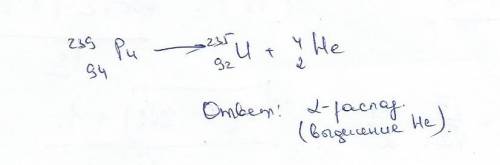 ²³⁹₉₄Pu ⟶ ²³⁵₉₂U + ⁴₂He
Ответ: α-распад.
(выделение He).